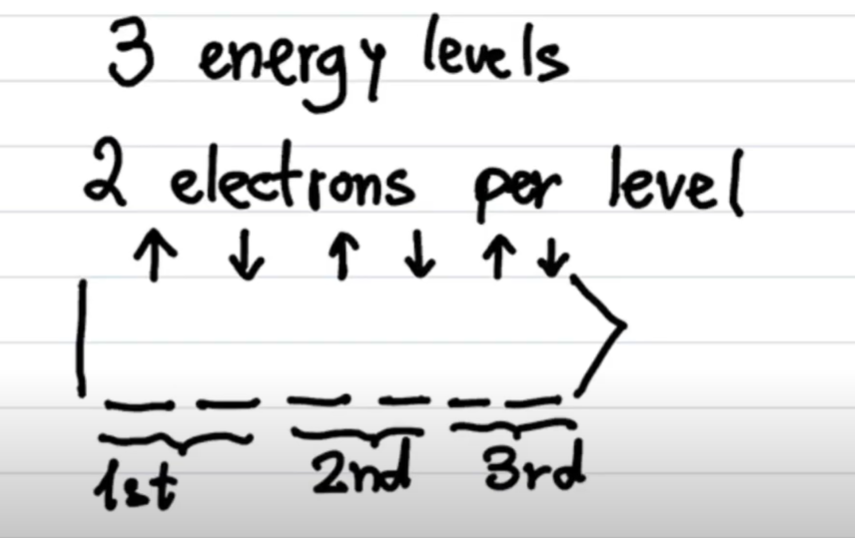 3 energy levels
2 electrons per level
↑ ↓ ↑ ↓ ↑ ↓
| _ _ _ _ _ _ >
1st 2nd 3rd